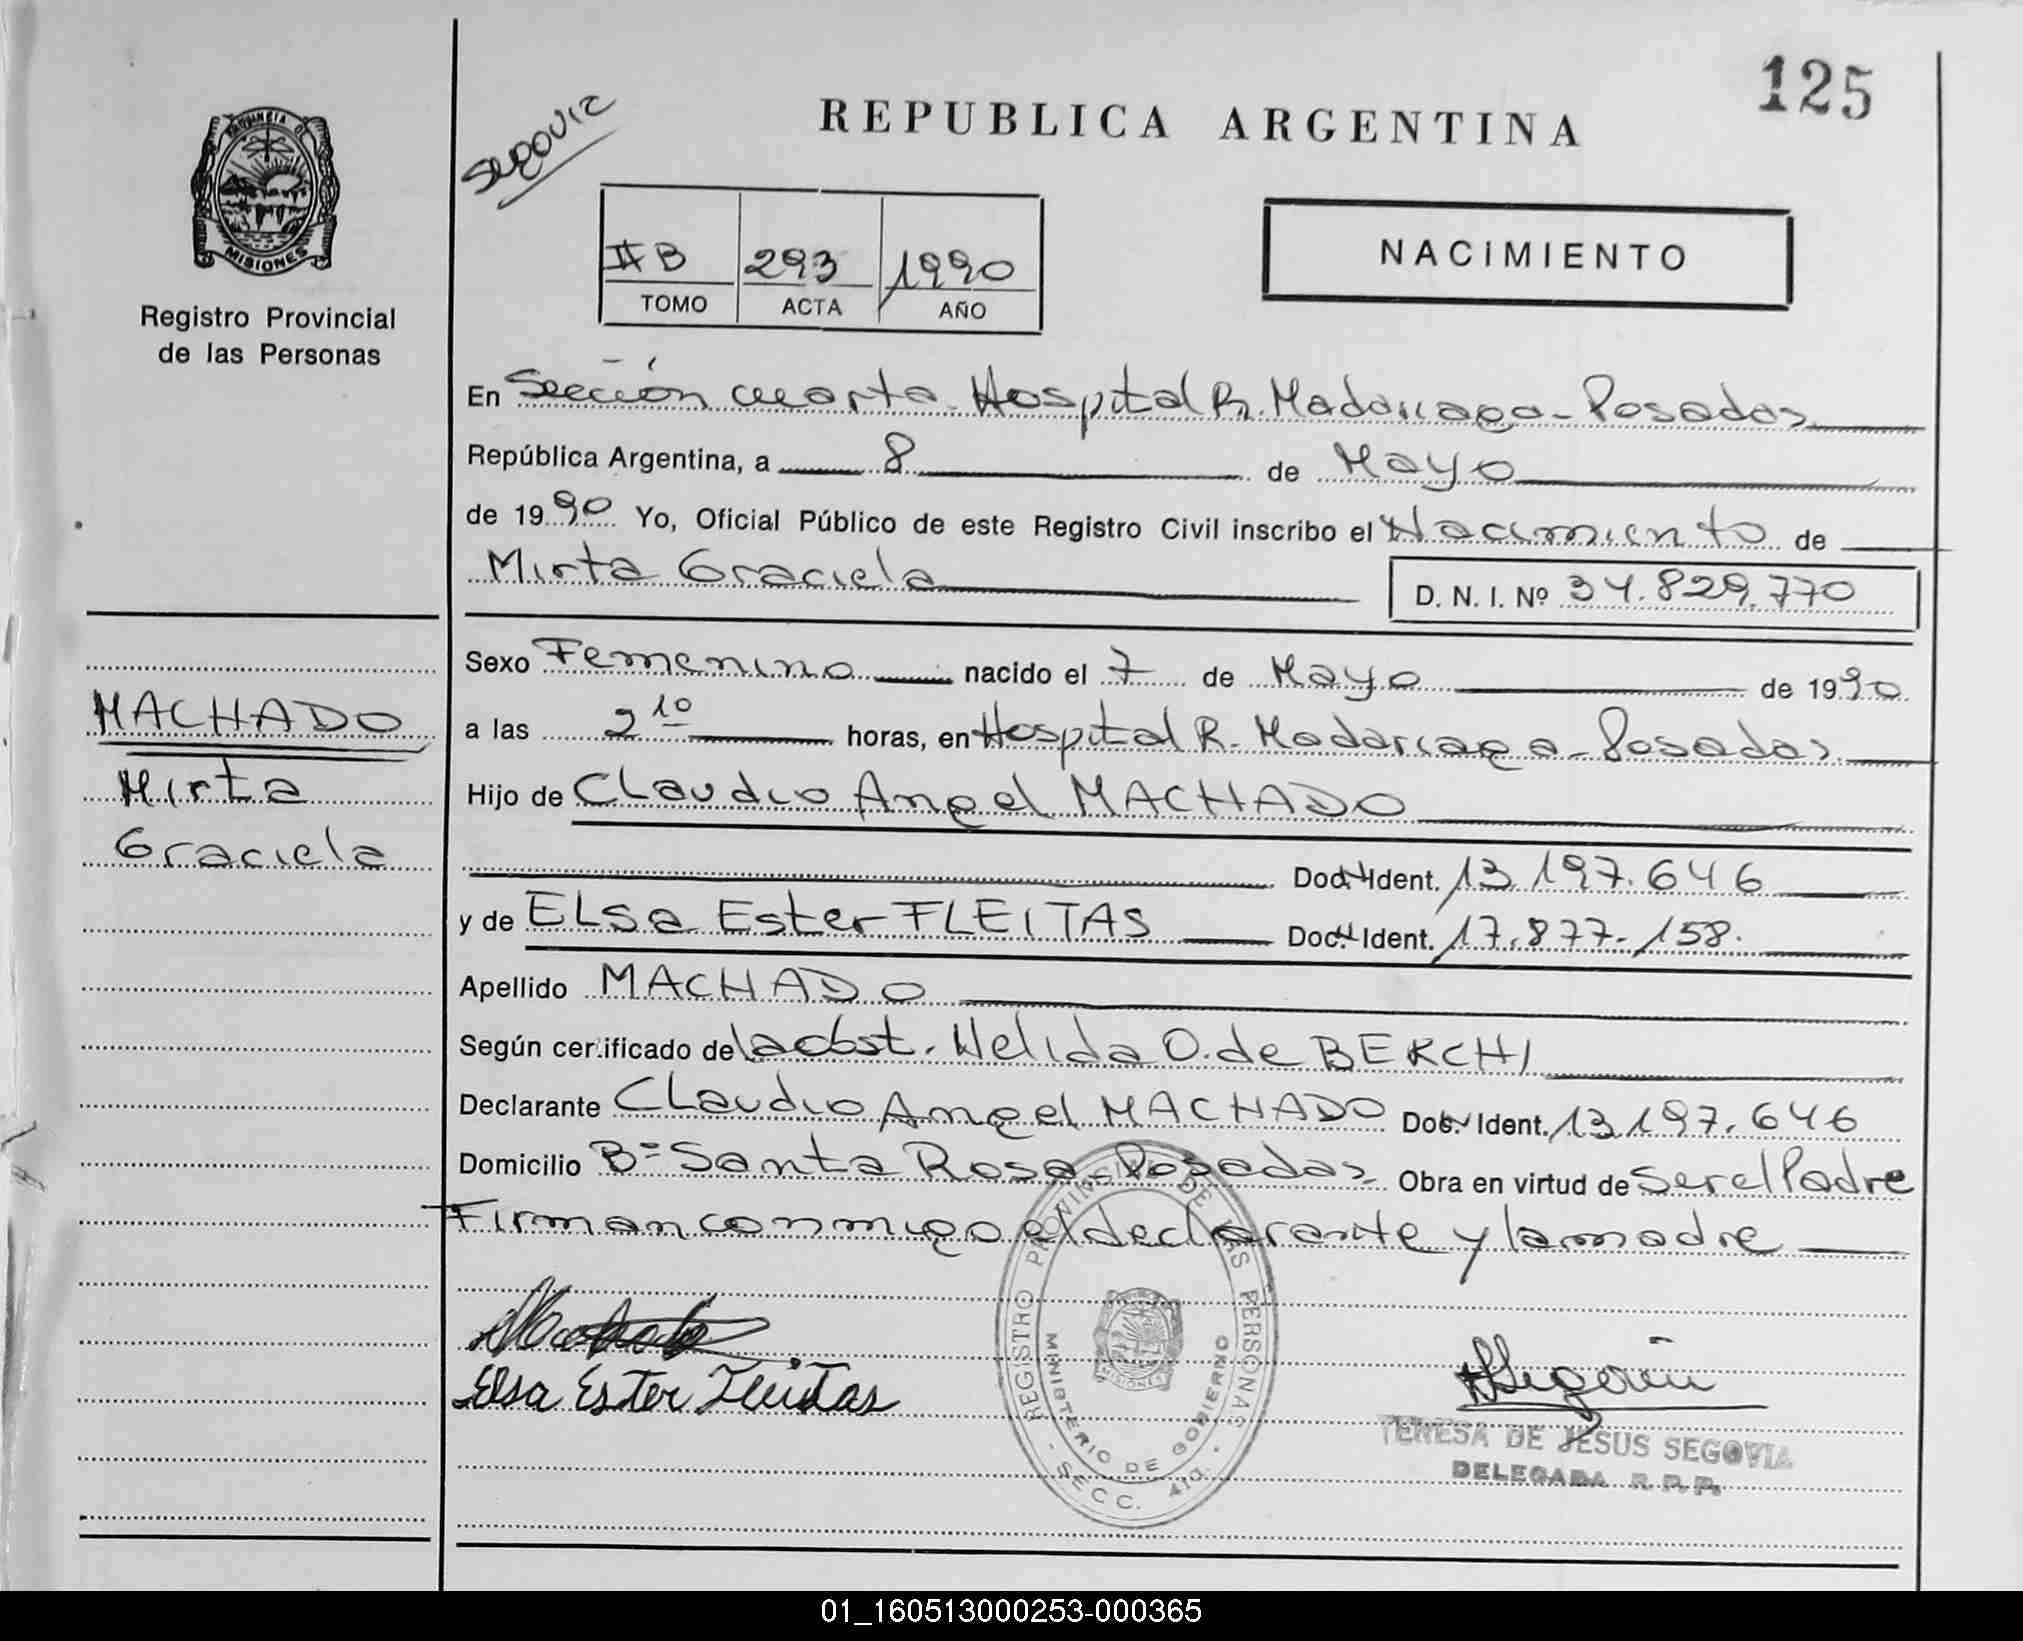 125
Segovia
REPUBLICA ARGENTINA
PROVINCIA DE
MISIONES
Registro Provincial
de las Personas
II B 293 1990
TOMO ACTA AÑO
NACIMIENTO
En Sección cuarta - Hospital R. Madariaga - Posadas
República Argentina, a 8 de Mayo
de 1990 Yo, Oficial Público de este Registro Civil inscribo el Nacimiento de
Mirta Graciela
D. N. I. Nº 34.829.770
Sexo Femenino nacido el 7 de Mayo de 1990
a las 2 10 horas, en Hospital R. Madariaga - Posadas
Hijo de Claudio Angel MACHADO
Doc. Ident. 13.197.646
y de ELsa Ester FLEITAS Doc. Ident. 17.877.158.
Apellido MACHADO
Según cer.ificado de la obst. Nelida O. de BERCHI
Declarante Claudio Angel MACHADO Doc. Ident. 13.197.646
Domicilio Bº Santa Rosa - Posadas Obra en virtud de ser el Padre
Firman conmigo el declarante y la madre
MACHADO
Mirta
Graciela
Elsa Ester Fleitas
REGISTRO PROVINCIAL DE LAS PERSONAS
MINISTERIO DE GOBIERNO
MISIONES
- SECC. 4ta. -
Segovia
TERESA DE JESUS SEGOVIA
DELEGADA R. P. P.
01_160513000253-000365